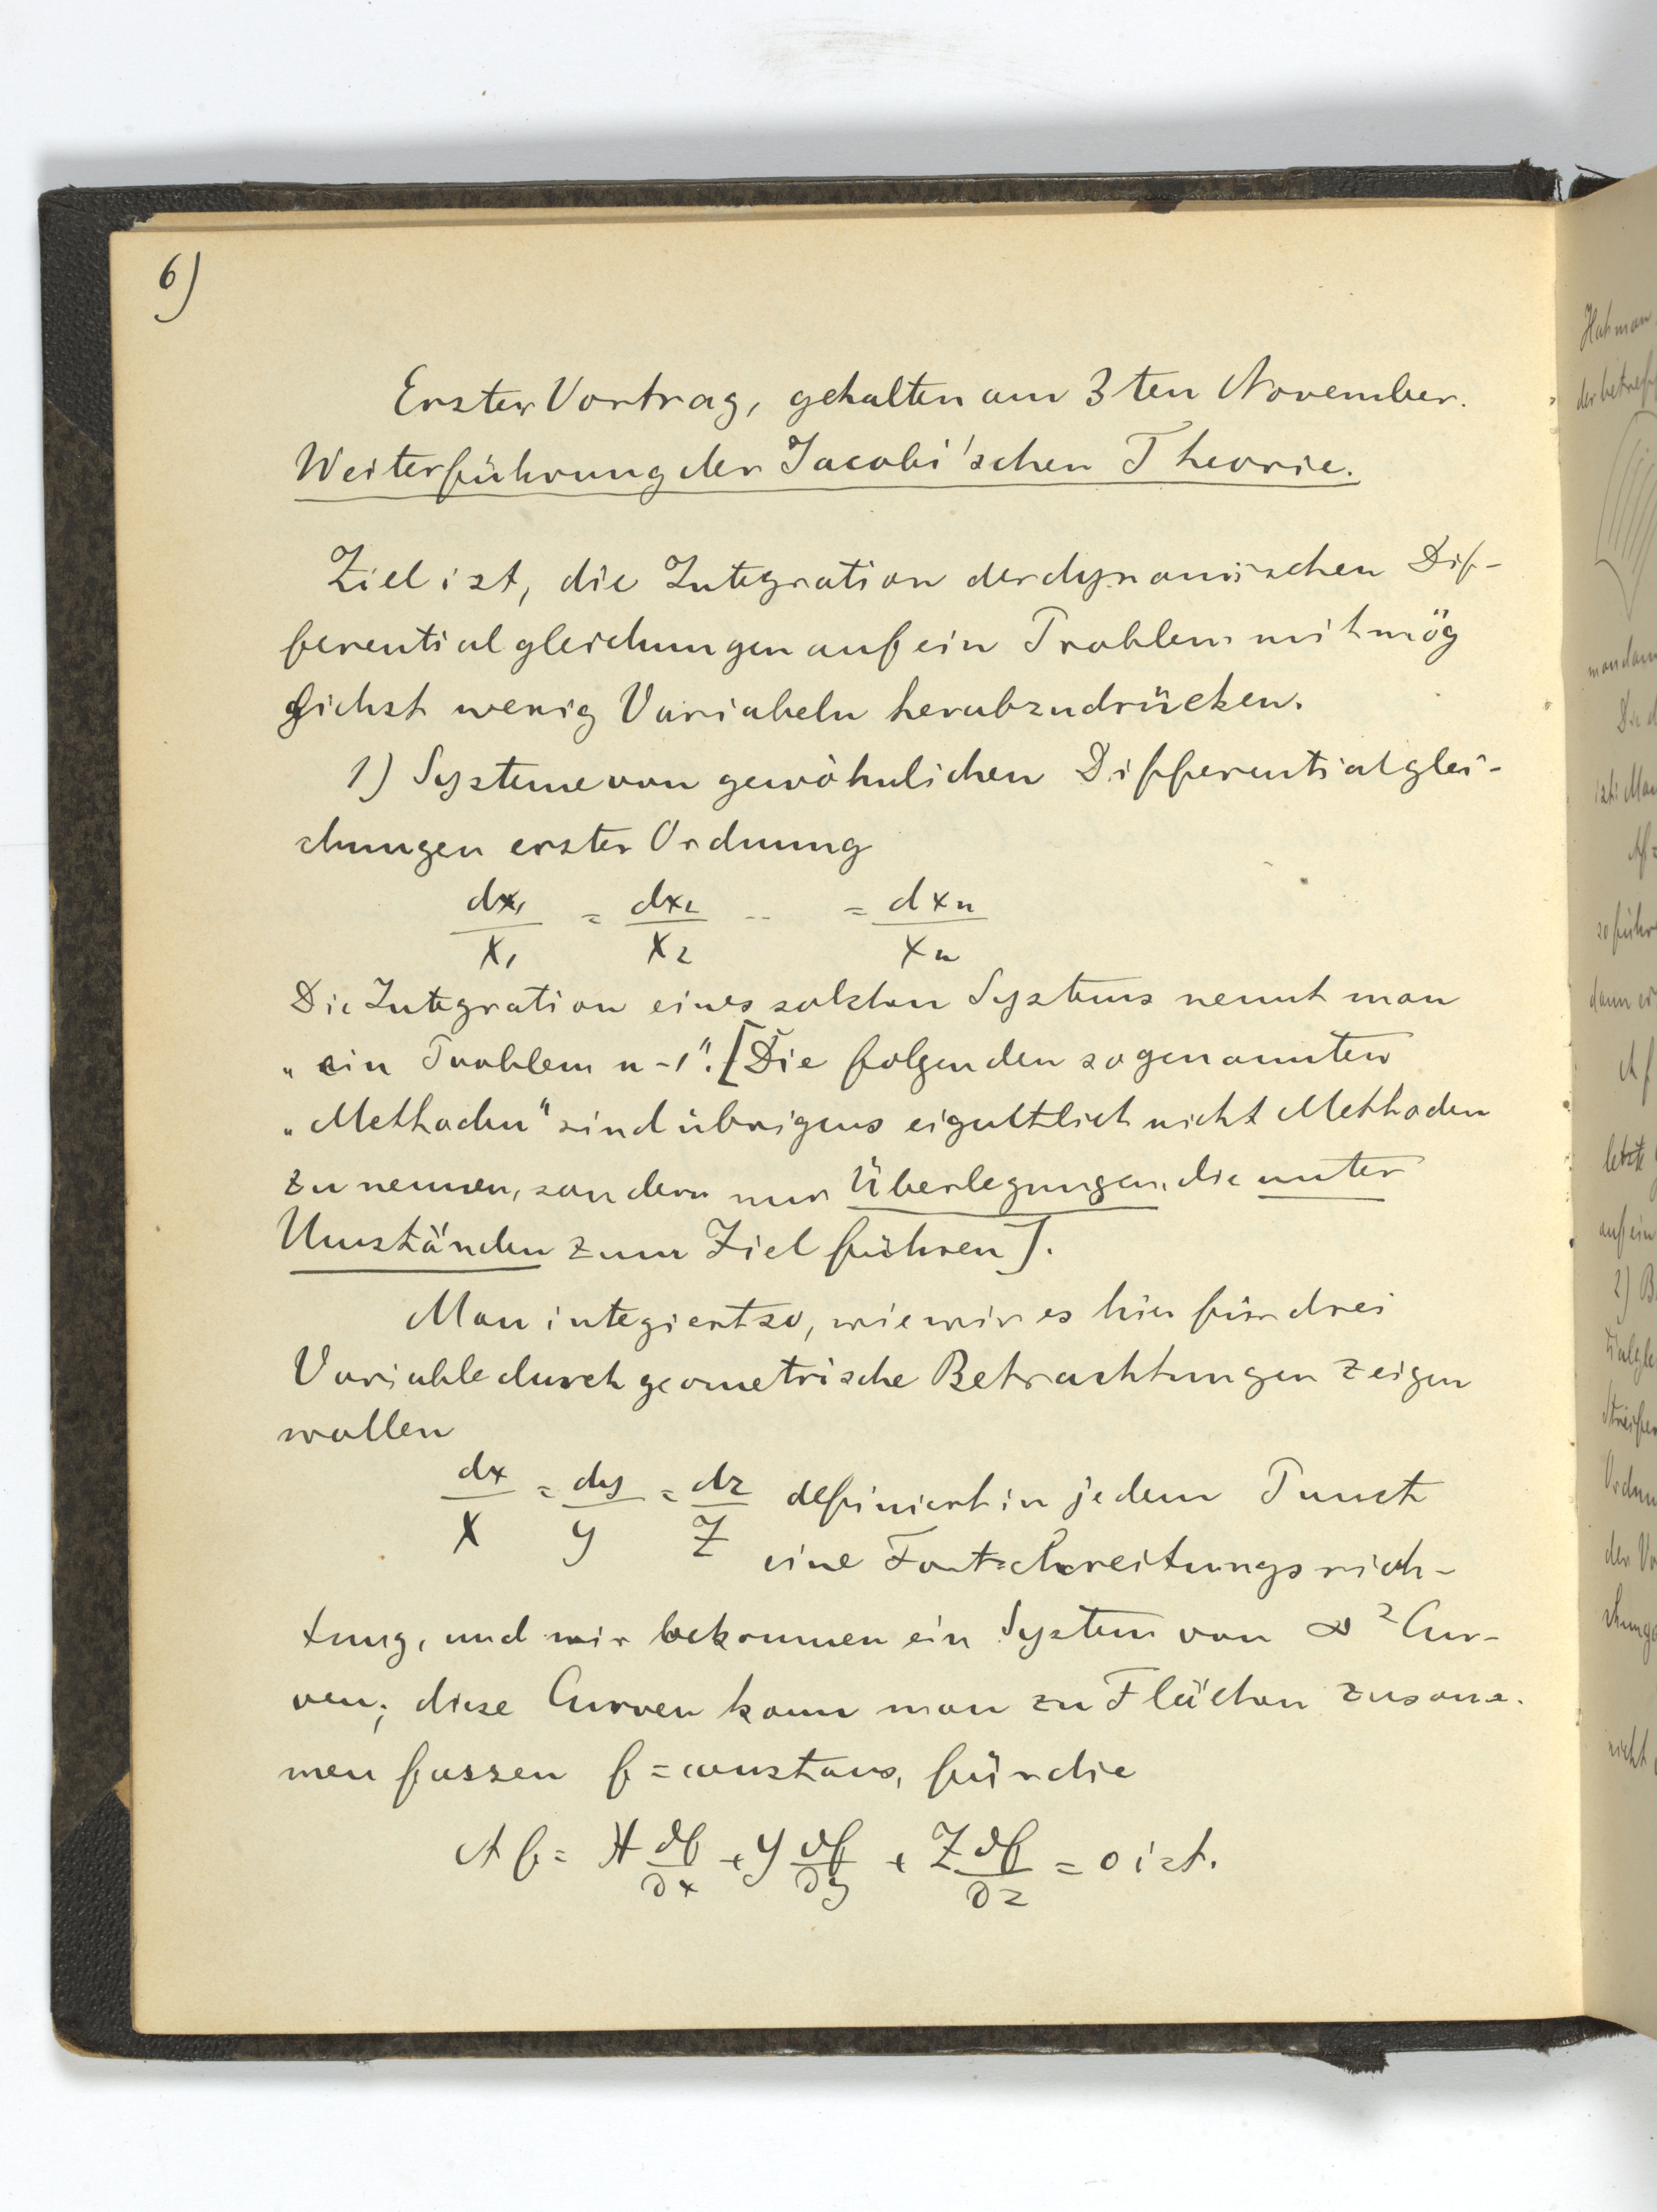 6)
Erster Vortrag, gehalten am 3ten November.
Weiterführung der Jacobi'schen Theorie.
Ziel ist, die Integration der dynamischen Dif-
ferentialgleichungen auf ein Problem mit mög
lichst wenig Variabeln herabzudrücken.
1) Systeme von gewöhnlichen Differentialglei-
chungen erster Ordnung
dx₁/X₁ = dx₂/X₂ -- = dxₙ/Xₙ
Die Integration eines solchen Systems nennt man
„ein Problem n-1“. [Die folgenden sogenannten
„Methoden“ sind übrigens eigentlich nicht Methoden
zu nennen, sondern nur Überlegungen, die unter
Umständen zum Ziel führen].
Man integiert so, wie wir es hier für drei
Variable durch geometrische Betrachtungen zeigen
wollen
dx/X = dy/Y = dz/Z definiert in jedem Punct
eine Fortschreitungsrich-
tung, und wir bekommen ein System von ∞² Cur-
ven; diese Curven kann man zu Flächen zusam-
men fassen f = constans, für die
Af = X ∂f/∂x + Y ∂f/∂y + Z ∂f/∂z = 0 ist.